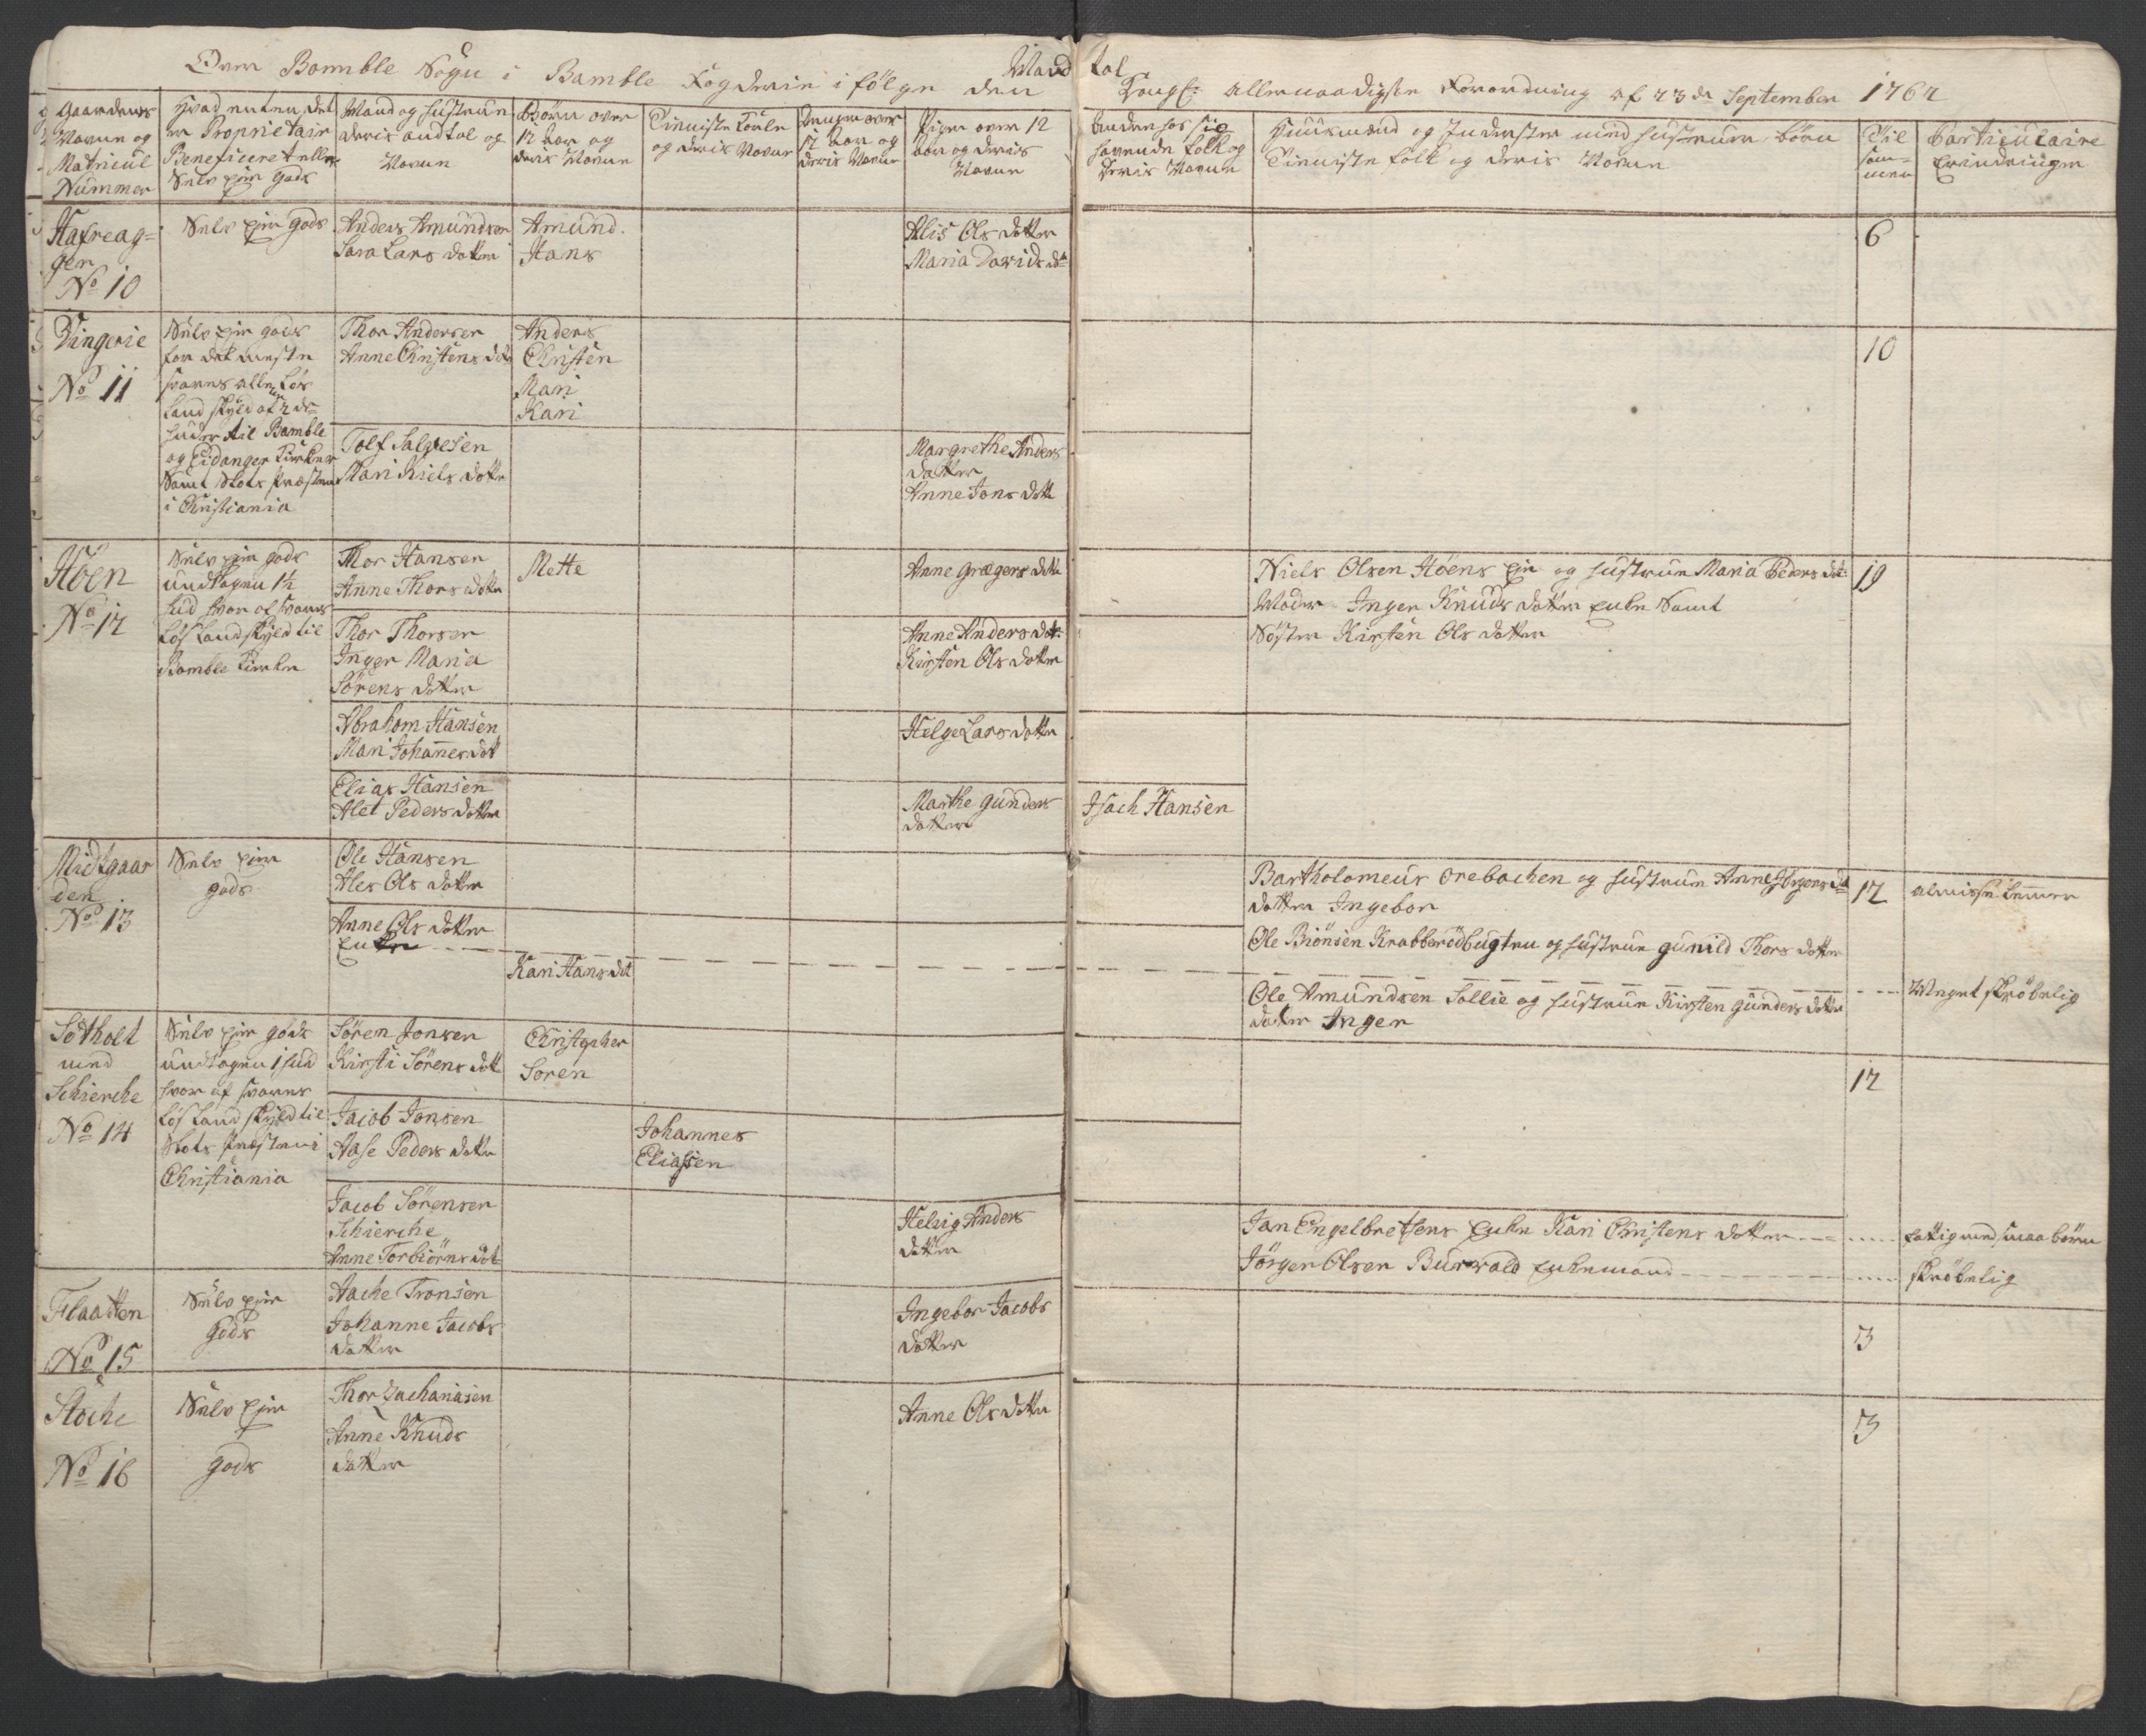 Mand tal
Over Bamble Sogn i Bamble Fogderie i følge den Kongl: allernaadigste Forordning af 23de September 1762
Gaardenes
Navne og
Matricul
Nummer
Hvad enten det
er Proprietair
Beneficeret eller
Selv Ejer Gods
Mand og Hustrue
deris andtal og
Navne
Børn over
12 Aar og
deris Navne
Tieniste Karle
og deris Navne
Drenge over
12 Aar og
deris Navne
Piger over 12
Aar og deris
Navne
Anden hos sig
havende folk og
deris Navne
Huusmænd og Inderster med Hustruer børn
Tieniste folk og deris Navne
Til
sam-
men
Particulaire
Erindringer
Hafreag-
ger
No 10
Selv Ejer Gods
Anders Amundsen
Sara Lars datter
Amund
Hans
Alis Ols datter
Maria Davids dr
6
Tingerie
No 11
Selv Ejer gods
for det meste
svares allene Løs
Land skyld af 2 de
huder til Bamble
og Eidanger Kirker
samt Slots Præsten
i Christiania
Thor Andersen
Anne Christens datr
Anders
Christen
Mari
Kari
10
Tolf Salvesen
Mari Niels datter
Margrethe Anders
datter
Anne Jons datt
Höen
No 12
Selv Ejer gods
undtagen 1½
hud hvor af svares
Løs Landskyld til
Bamble Kirke
Thor Hansen
Anne Thors datter
Mette
Anne Grægers datt
Niels Olsen Höens Eje og Hustrue Maria Peders dat:
Moder Inger Knuds datter Enke Samt
Søster Kirsten Ols datter
19
Thor Thorsen
Inger Maria
Sörens datter
Anne Anders dat:
Kirsten Ols datter
Abraham Hansen
Mari Johannes dat
Helge Lars datter
Elias Hansen
Alet Peders datter
Marthe Gunders
datter
Isach Hansen
Midtgaar
den
No 13
Selv Ejer
gods
Ole Hansen
Ales Ols datter
Bartholomeus Orebachen og Hustrue Anne Jörgens dat
datter Ingebor
12
almisse Lemmer
Anne Ols datter
Enke
Ole Biönsen Krabberödbugten og Hustrue Gunild Thors datter
Kari Hans dat
Ole Amundsen Sollie og Hustrue Kirsten Gunders datter
datter Inger
Meget skröbelig
Sotholt
med
Schierche
No 14
Selv Ejer gods
undtagen 1 hud
hvor af svares
Løs Land skyld til
Slots Præsten i
Christiania
Sören Jonsen
Kirsti Sörens datt
Christopher
Soren
12
Jacob Jonsen
Aase Peders datter
Johannes
Eliassen
Jacob Sörensen
Schierche
Anne Torbiörns dat
Helvig Anders
datter
Jan Engelbretsens Enke Kari Christens datter
fattig med smaa børn
Jörgen Olsen Burwald Enkemand
skröbelig
Flaatten
No 15
Selv Ejer
Gods
Aache Tronsen
Johanne Jacobs
datter
Ingebor Jacobs
datter
3
Stoche
No 16
Selv Ejer
gods
Thor Zachariasen
Anne Knuds
datter
Anne Ols datter
3